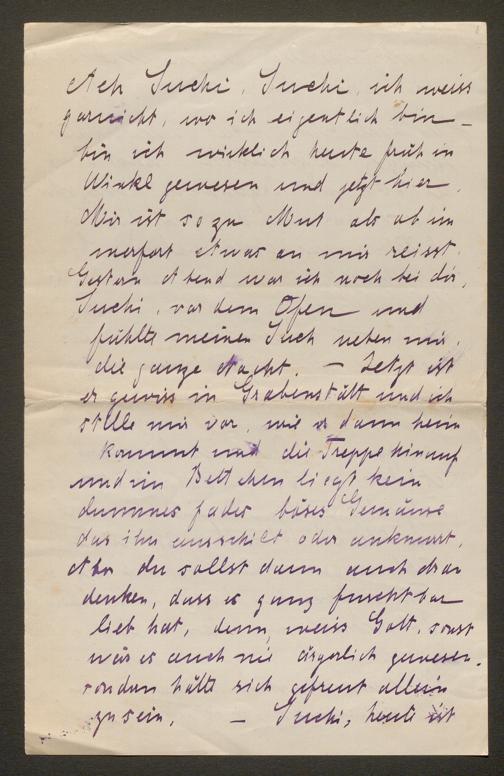 Ach Suchi, Suchi, ich weiss
garnicht, wo ich eigentlich bin –
bin ich wirklich heute früh in
Winkl gewesen und jetzt hier.
Mir ist so zu Mut als ob im
merfort etwas an mir reisst.
Gestern Abend war ich noch bei dir,
Suchi, vor dem Ofen und
fühlte meinen Such neben mir,
die ganze Nacht. – Jetzt ist
er gewiss in Grabenstätt und ich
stelle mir vor, wie er dann heim
kommt und die Treppe hinauf
und im Bettchen liegt kein
dummes fades böses
das ihn ausschilt oder anknurrt,
Aber du sollst dann auch dran
denken, dass es ganz furchtbar
lieb hat, denn, weiss Gott, sonst
wär es auch nie ärgerlich gewesen,
sondern hätte sich gefreut allein
zu sein. – Suchi, heute ist